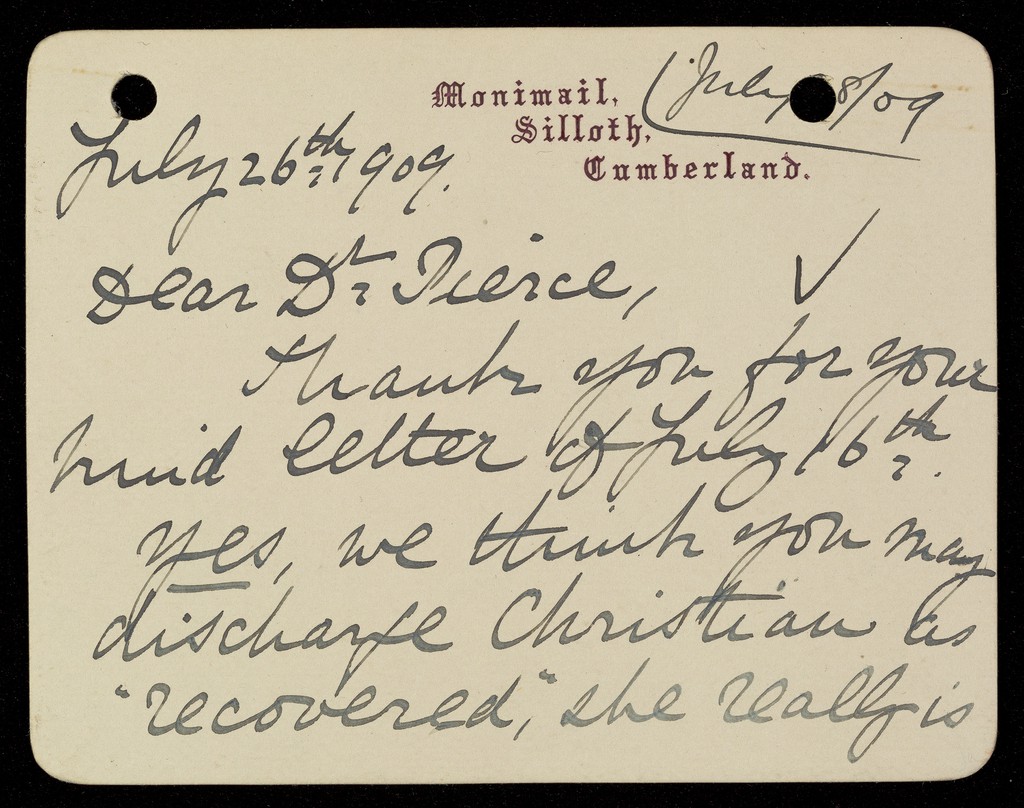 Monimail,
Silloth,
Cumberland.
(July 8/09
July 26th 1909.
Dear Dr. Pierce,
Thank you for your
kind letter of July 16th.
Yes, we think you may
discharge Christian as
"recovered," she really is